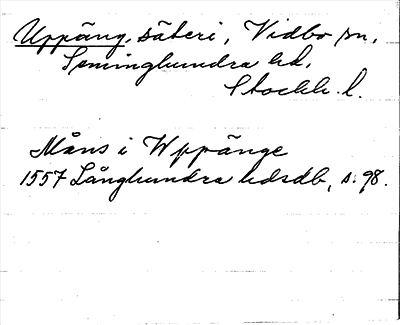 Uppäng, säteri, Vidbo sn,
Seminghundra hd,
Stockh. l.
Måns i Wppänge
1557 Långhundra hdsdb, s. 98.